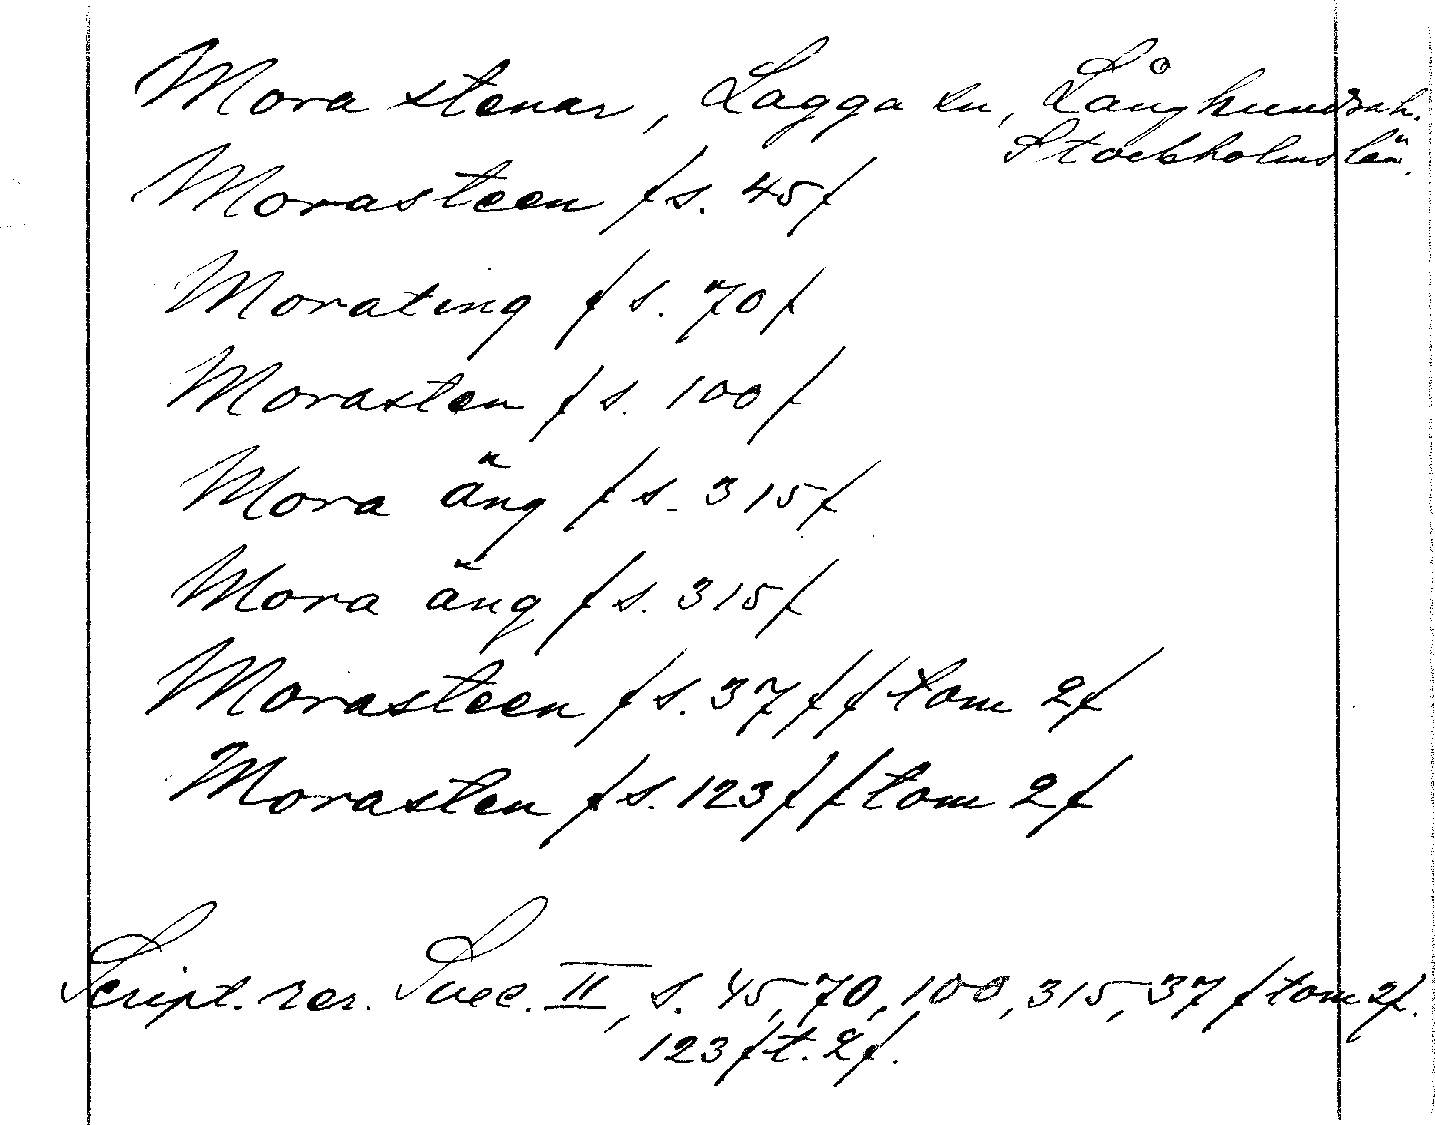 Mora stenar, Lagga sn, Långhundrah.
Stockholms län.
Morasteen /s. 45/
Morating /s. 70/
Morasten /s. 100/
Mora äng /s. 315/
Mora äng /s. 315/
Morasteen /s. 37/ /tom 2/
Morasten /s. 123/ /tom 2/
Script. rer. Suec. II, s. 45, 70, 100, 315, 37 /tom 2/.
123 /t. 2/.